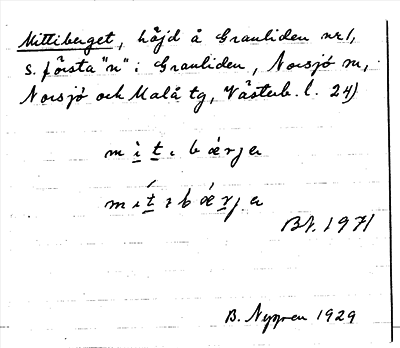 Mittiberget, höjd å Granliden nr 1,
S. första "n" i Granliden, Norsjö sn,
Norsjö och Malå tg, Västerb. l. 24)
mìtıbærjα
mítıbærjα
Bt. 1971
B. Nygren 1929